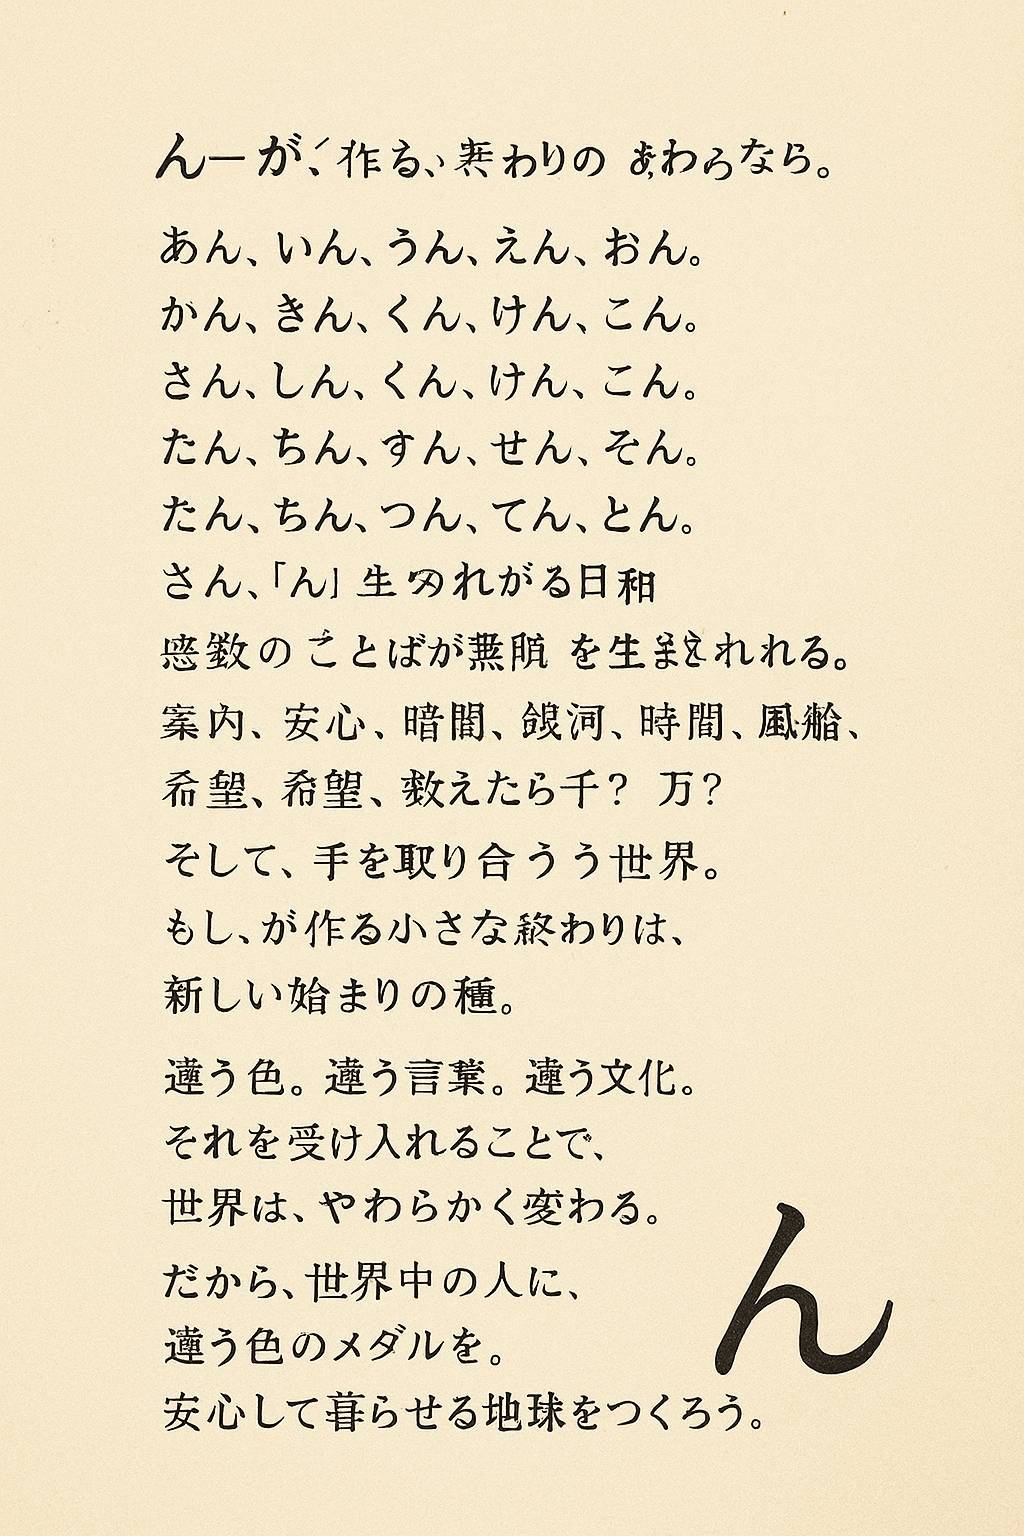 んーが、作る、わりの わらなら。
あん、いん、うん、えん、おん。
かん、きん、くん、けん、こん。
さん、しん、くん、けん、こん。
たん、ちん、すん、せん、そん。
たん、ちん、つん、てん、とん。
さん、「ん」生 れがる日和
数の ことばが無 を生まれれる。
案内、安心、暗闇、銀河、時間、風船、
希望、希望、数えたら千? 万?
そして、手を取り合うう世界。
もし、が作る小さな終わりは、
新しい始まりの種。
違う色。違う言葉。違う文化。
それを受け入れることで、
世界は、やわらかく変わる。
だから、世界中の人に、
違う色のメダルを。
安心して暮らせる地球をつくろう。
ん